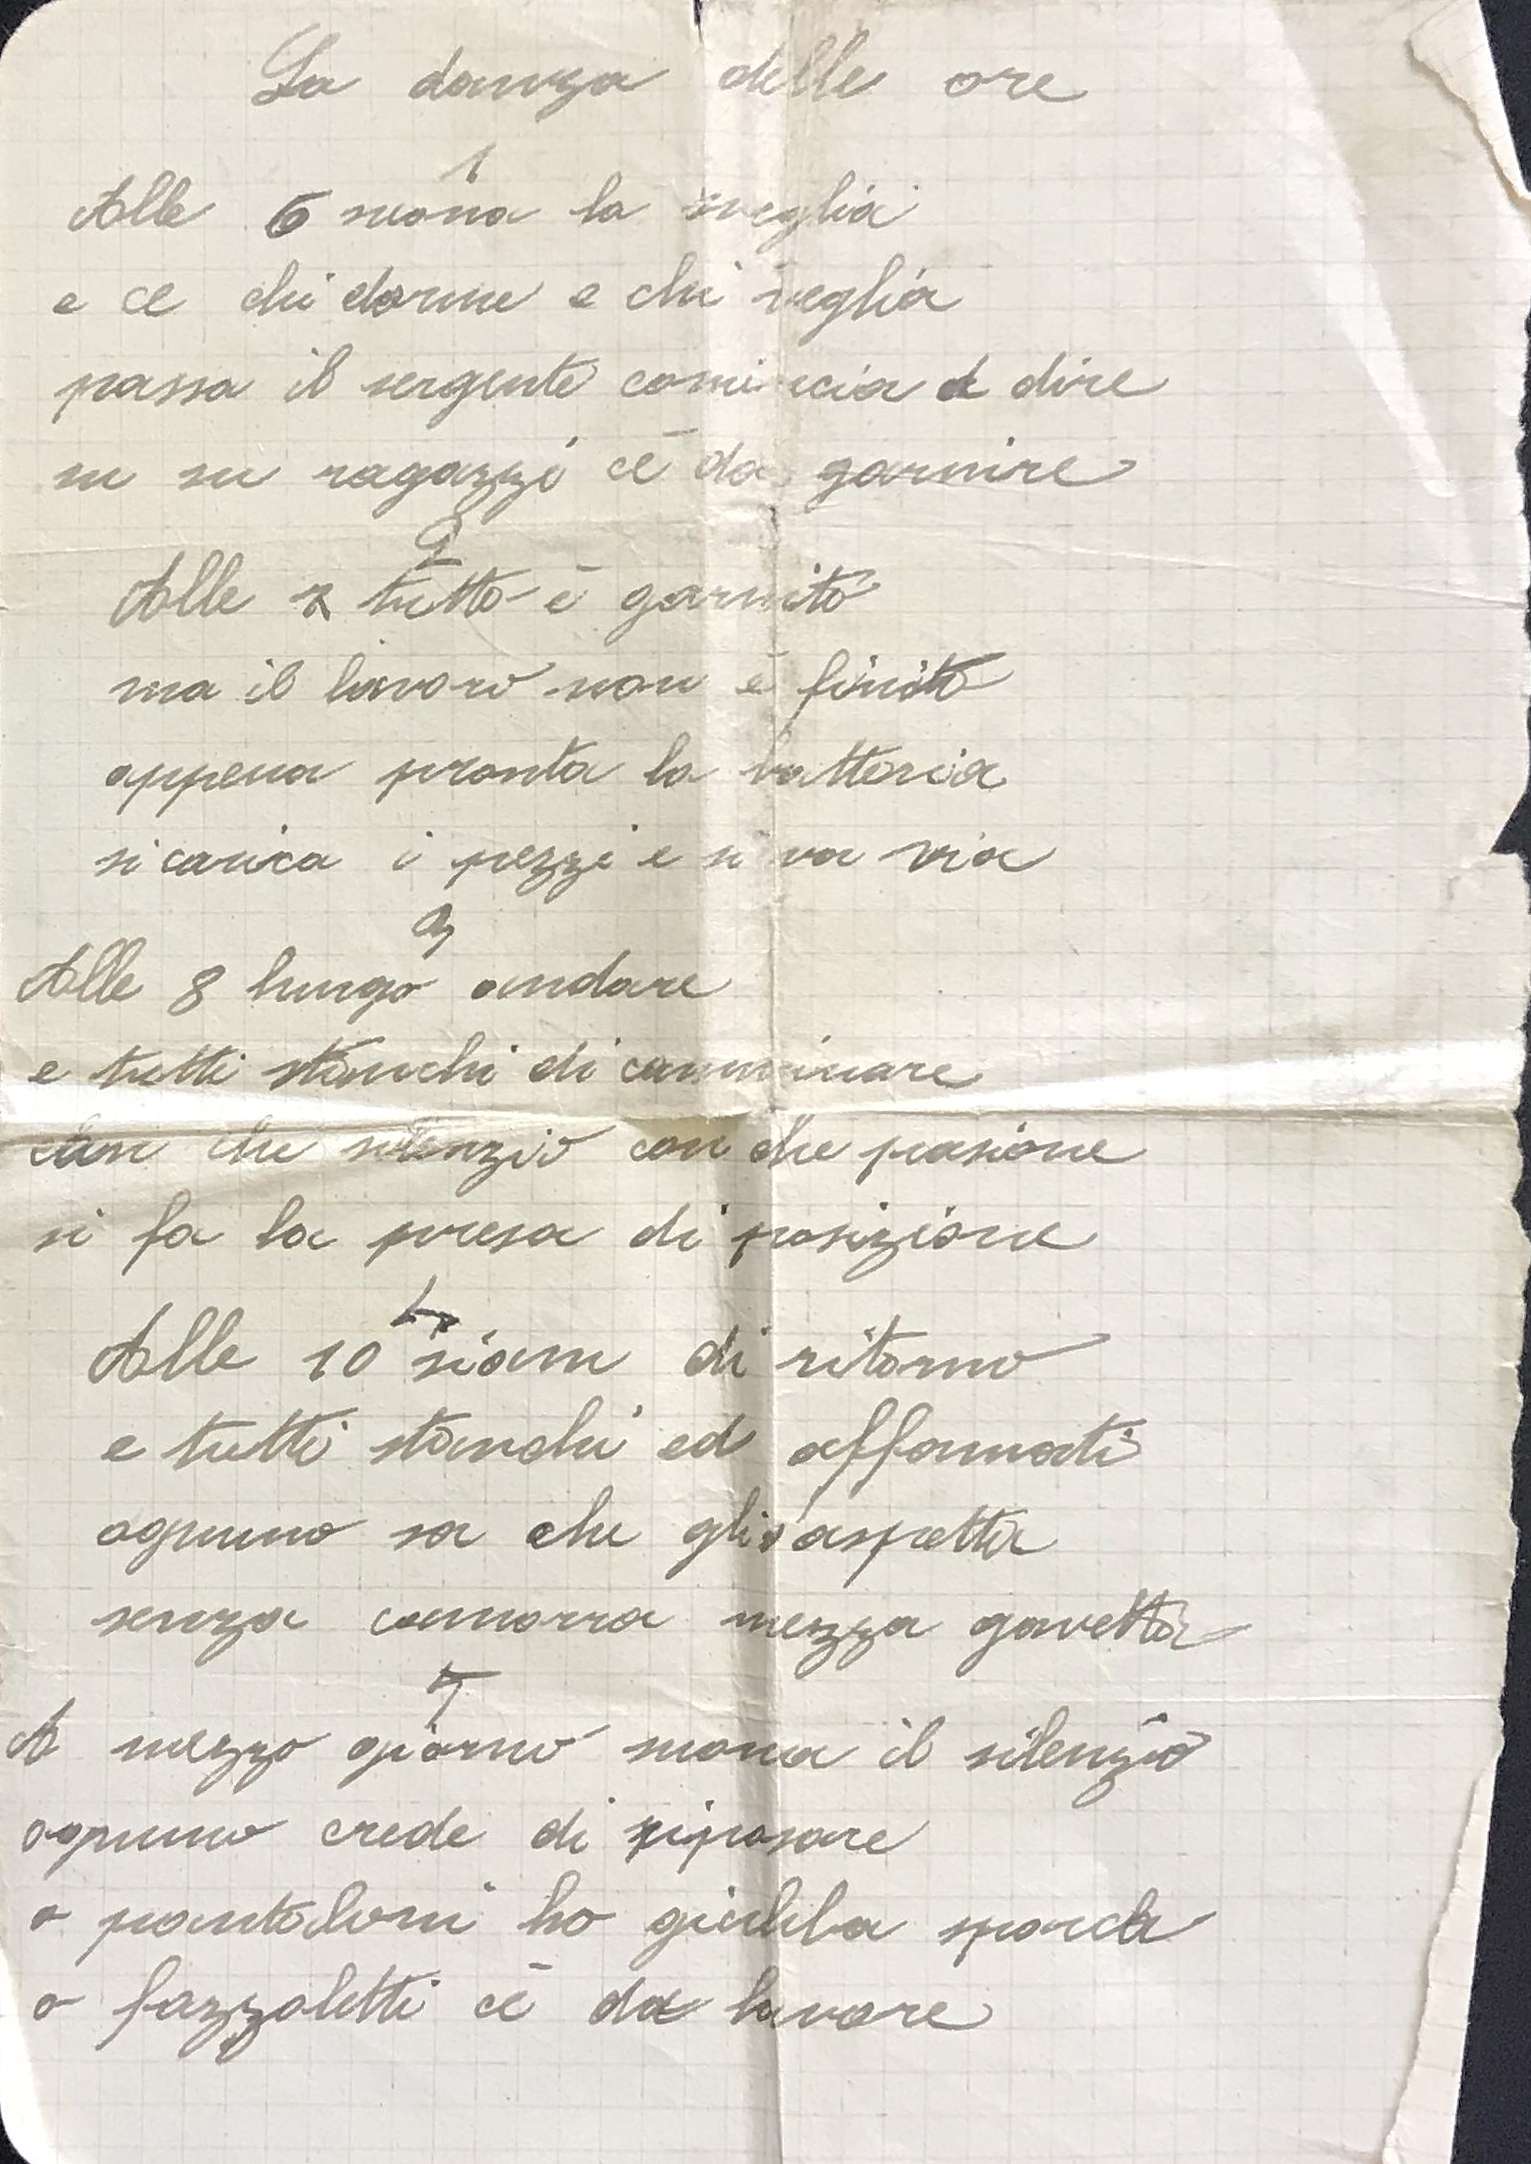 La danza delle ore
1
Alle 6 suona la sveglia
e ce chi dorme e chi veglia
passa il sergente comincia a dire
su su ragazzi cè da garnire
2
Alle 7 tutto è garnito
ma il lavoro non è finito
appena pronta la batteria
si carica i pezzi e si va via
3
Alle 8 lungo andare
e tutti stanchi di camminare
con che silenzio con che pasione
si fa la presa di posizione
4
Alle 10 siam di ritorno
e tutti stanchi ed affamati
ognuno sa che gli s'aspetta
senza camorra mezza gavetta
5
A mezzo giorno suona il silenzio
ognuno crede di riposare
o pantaloni ho giubba sporca
o fazzoletti cè da lavare